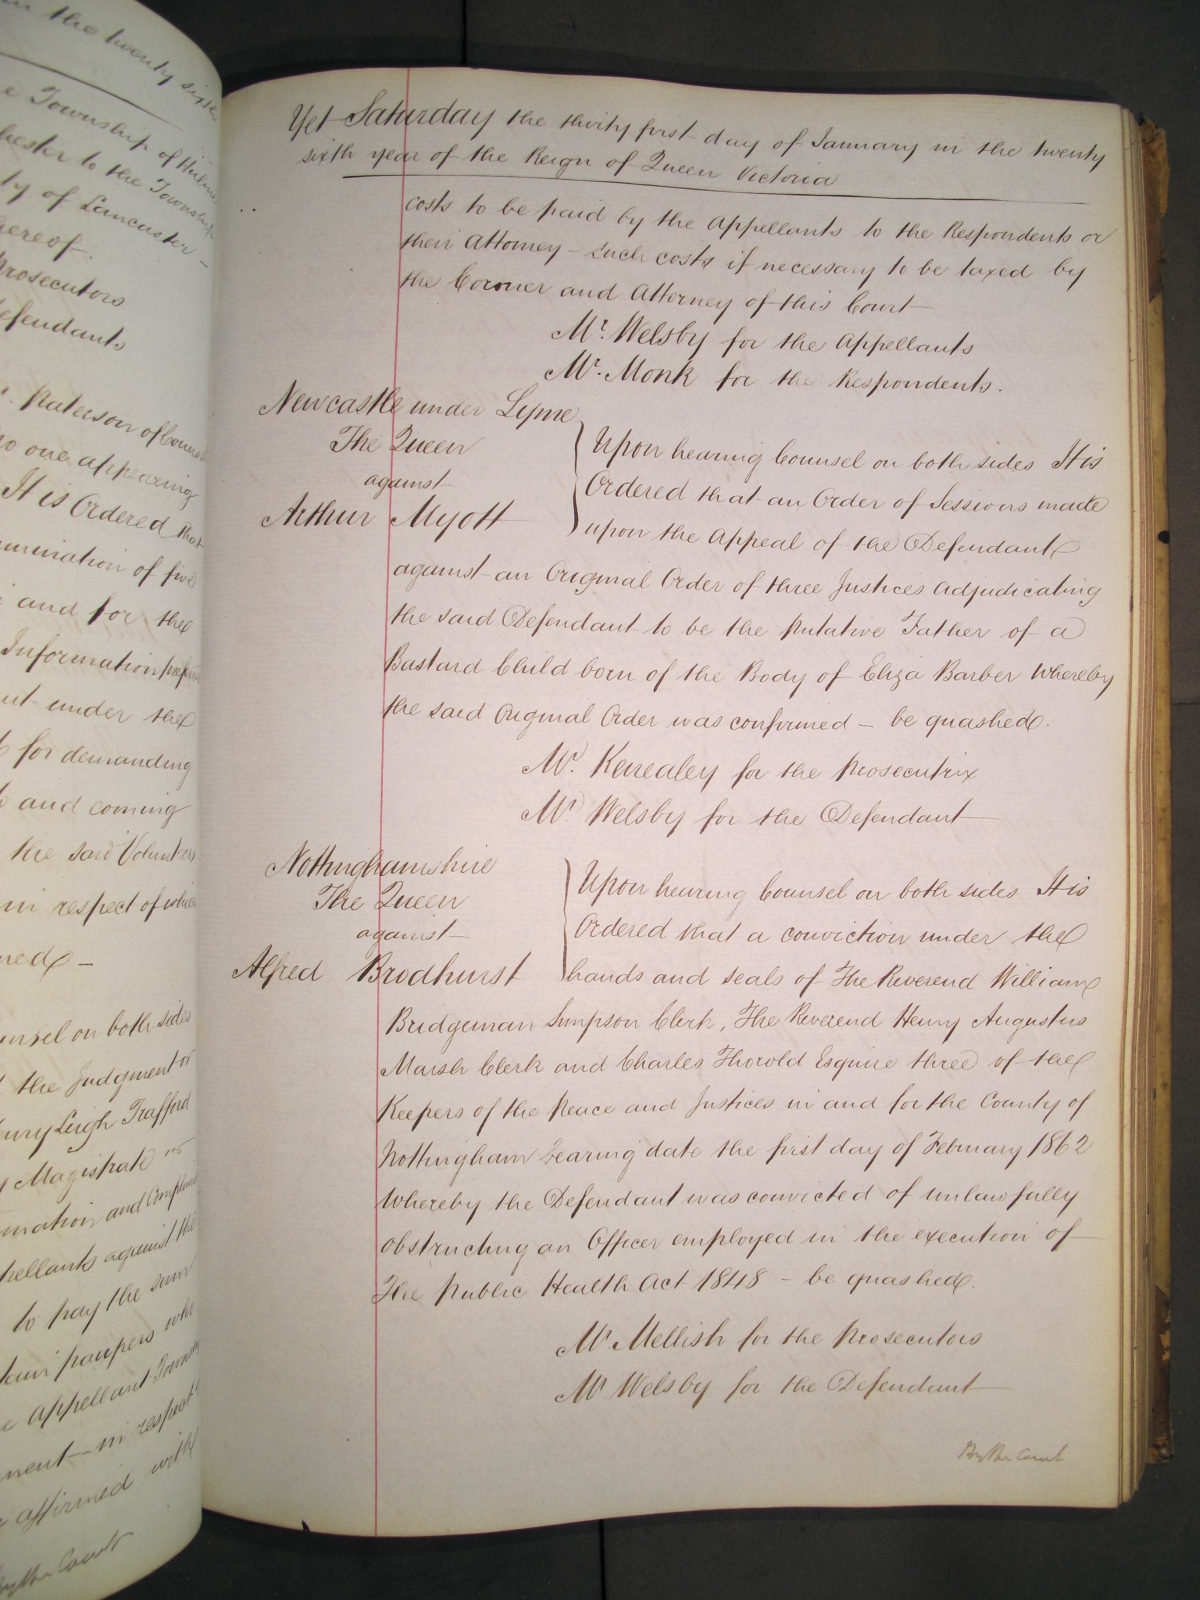 in the twenty sixth
Township of
to the Township
of Lancaster
hereof.
Prosecutors
Defendants
Paterson of Counsel
no one appearing
It is Ordered that
of five
and for the
Information
under the
for demanding
and coming
the said
in respect of which
Counsel on both sides
the Judgment of
Henry Leigh Trafford
Magistrate
and Complaint
Appellants against the
to pay the sum
paupers who
Appellant Township
in respect
affirmed with
By the Court
Yet Saturday the thirty first day of January in the twenty
sixth year of the Reign of Queen Victoria
costs to be paid by the Appellants to the Respondents or
their Attorney – such costs if necessary to be taxed by
the Coroner and Attorney of this Court
Mr. Welsby for the Appellants
Mr. Monk for the Respondents.
Newcastle under Lyme
The Queen
against
Arthur Myott
Upon hearing Counsel on both sides It is
Ordered that an Order of Sessions made
upon the Appeal of the Defendant
against an Original Order of three Justices adjudicating
the said Defendant to be the putative Father of a
Bastard Child born of the Body of Eliza Barber whereby
the said Original Order was confirmed – be quashed.
Mr. Kenealey for the Prosecutrix
Mr. Welsby for the Defendant
Nottinghamshire
The Queen
against
Alfred Brodhurst
Upon hearing Counsel on both sides It is
Ordered that a conviction under the
hands and seals of The Reverend William
Bridgeman Simpson Clerk, The Reverend Henry Augustus
Marsh Clerk and Charles Thorold Esquire three of the
Keepers of the Peace and Justices in and for the County of
Nottingham bearing date the first day of February 1862
whereby the Defendant was convicted of unlawfully
obstructing an Officer employed in the execution of
The Public Health Act 1848 – be quashed.
Mr Mellish for the Prosecutors
Mr Welsby for the Defendant
By the Court